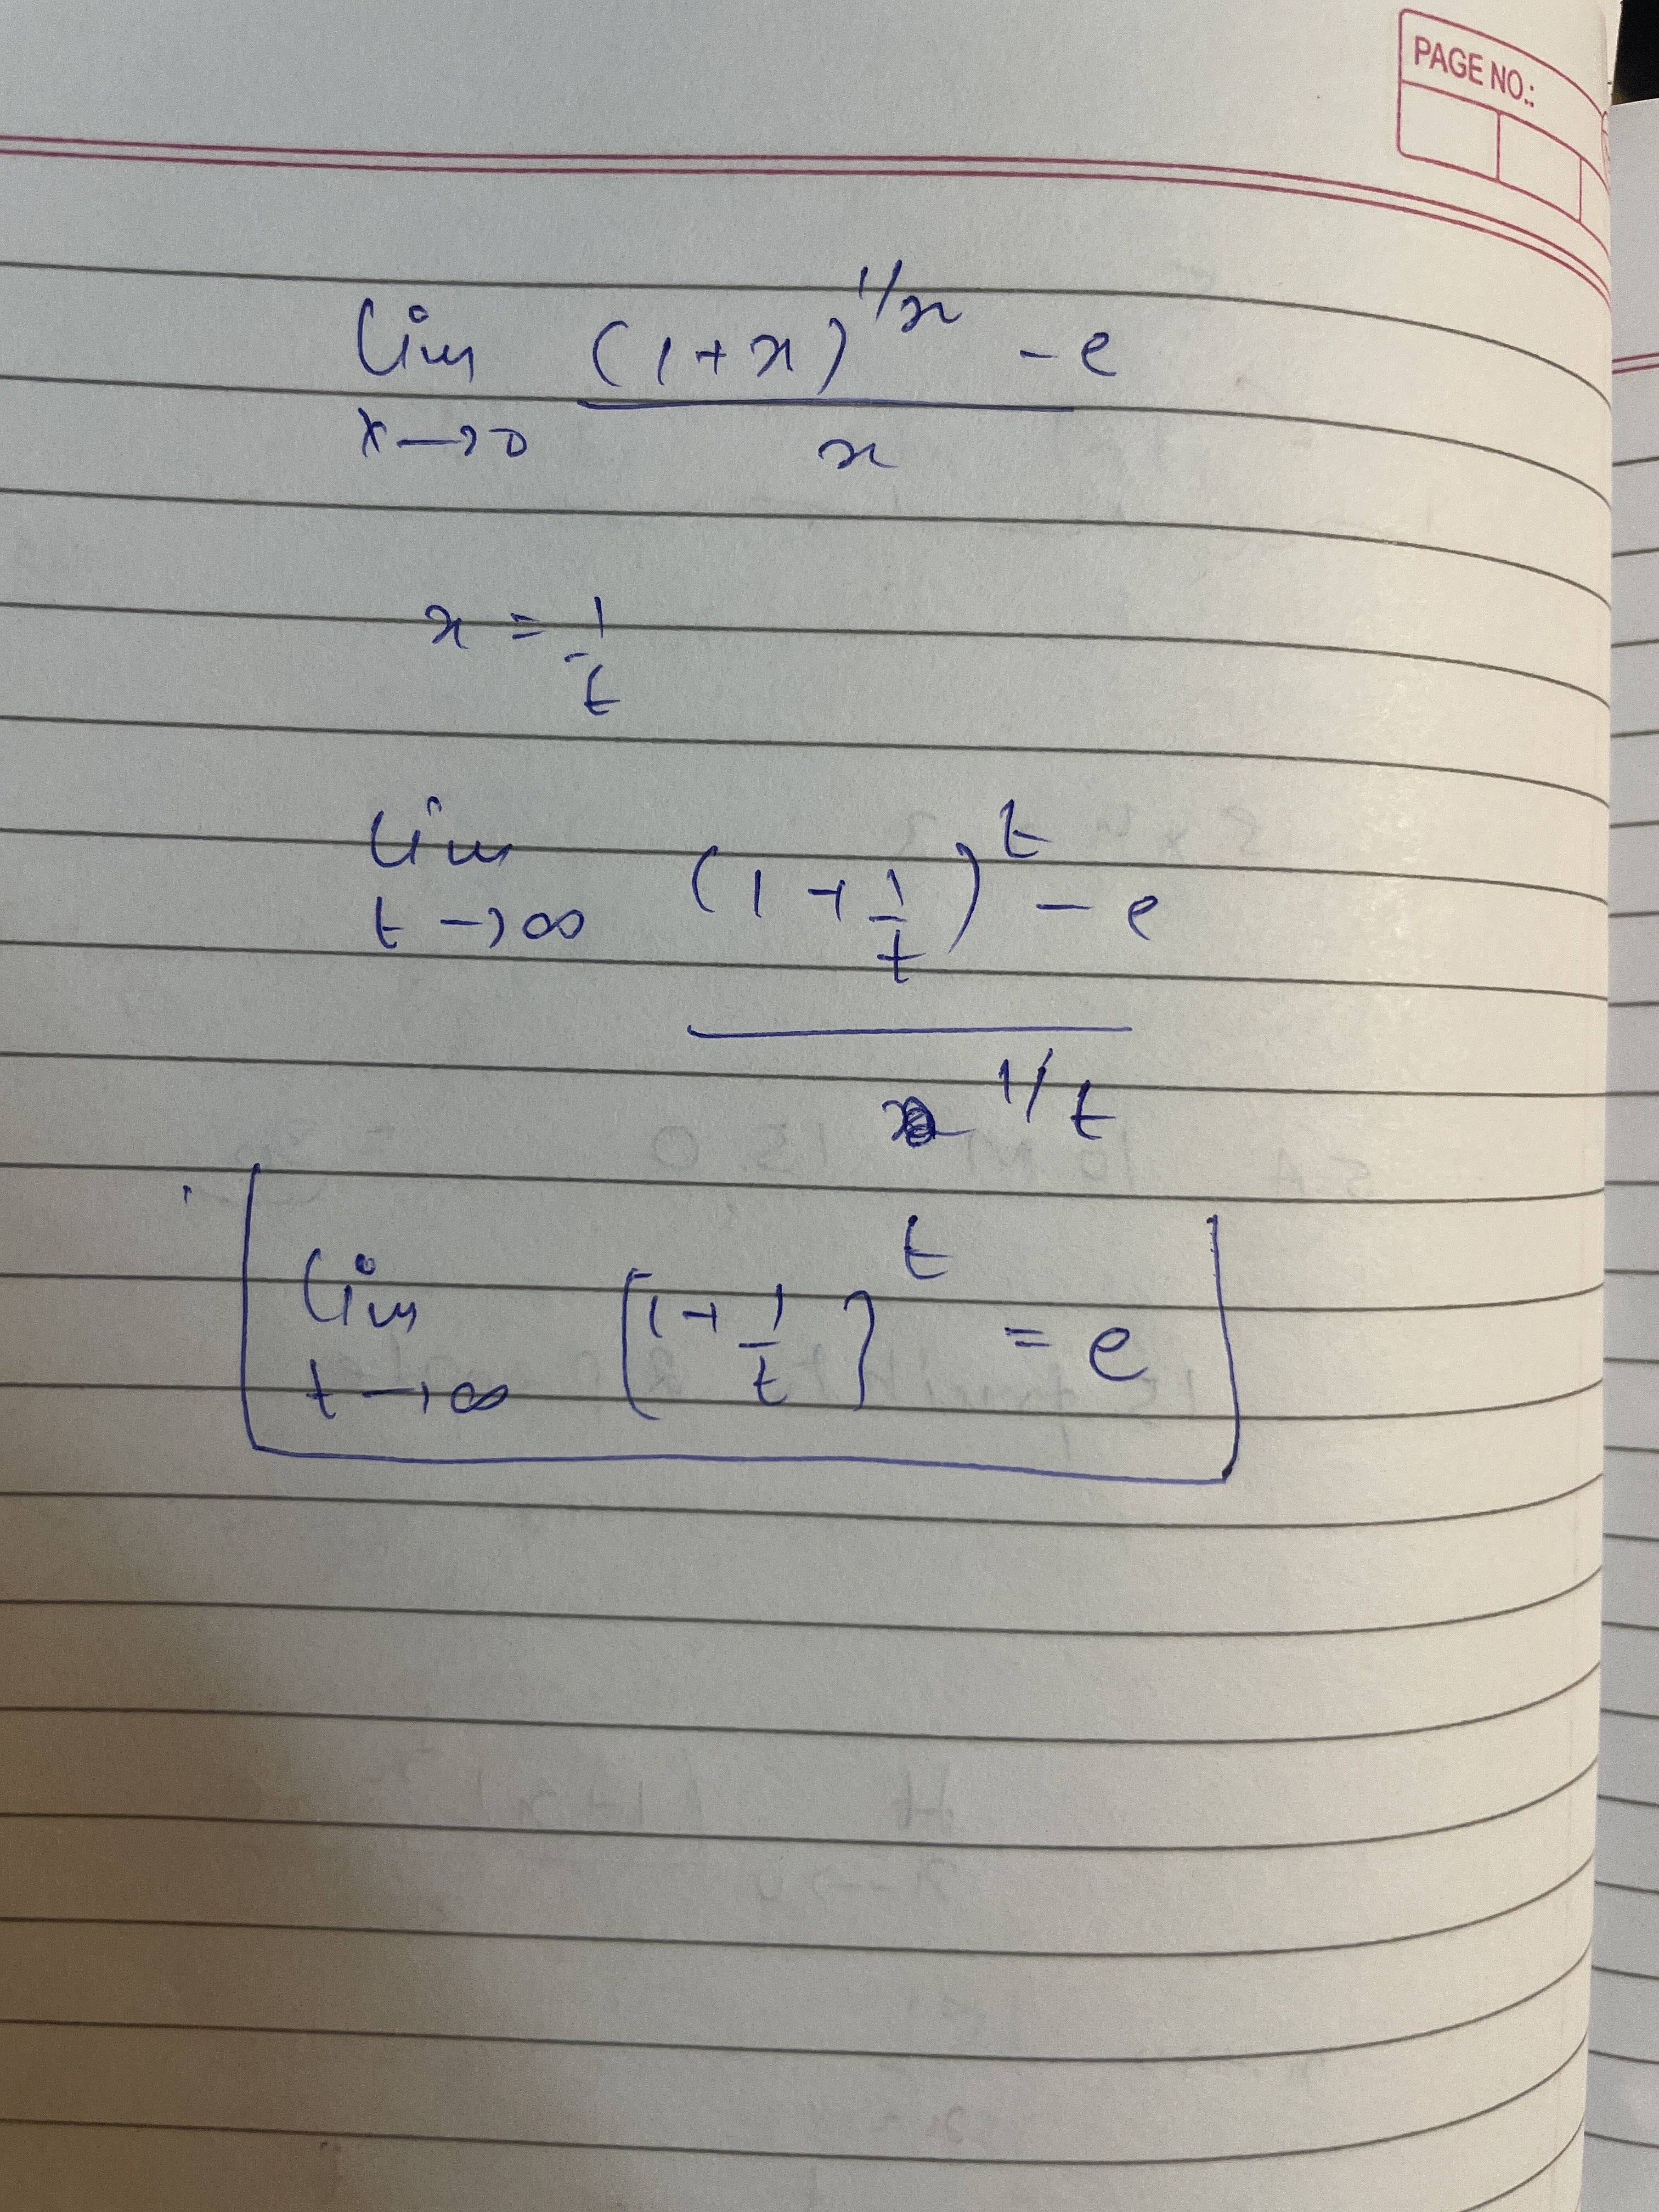 PAGE NO.:
lim (1+x)^1/x - e
x→0 x
x = 1/t
lim (1+1/t)^t - e
t→∞ 1/t
lim [1+1/t]^t = e
t→∞